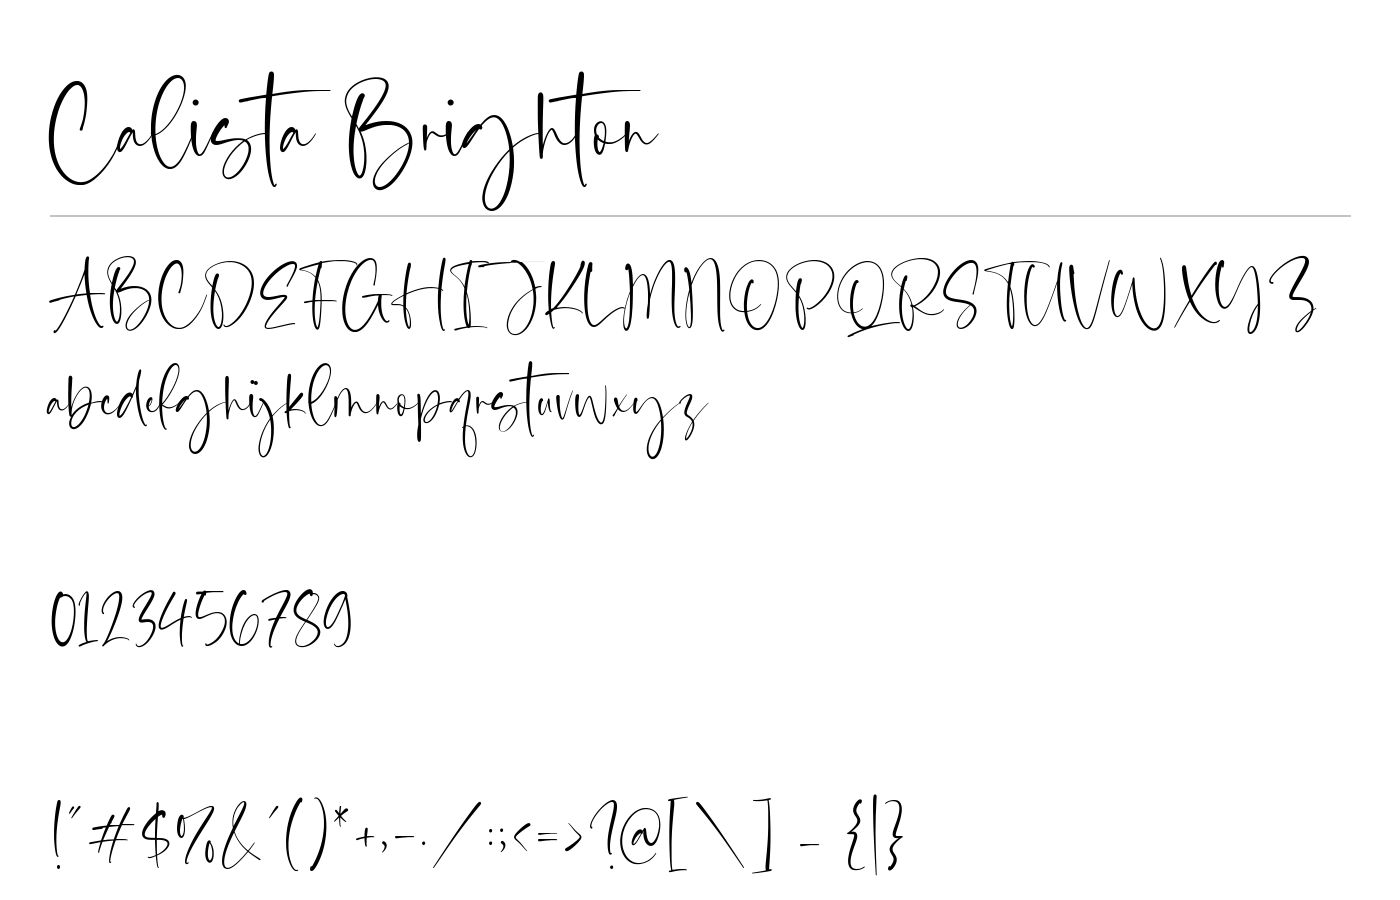 Calista Brighton
ABCDEFGHIJKLMNOPQRSTUVWXYZ
abcdefghijklmnopqrstuvwxyz
0123456789
!"#$%&'()*+,-./:;<=>?@[\]_{|}